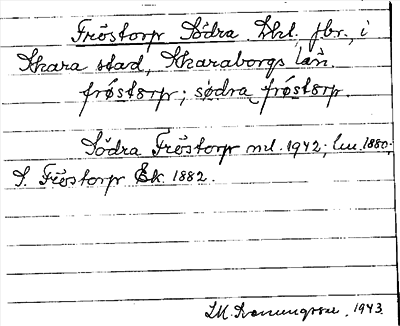 Fröstorp Södra. Lht. jbr., i
Skara stad, Skaraborgs län.
fröstorp; södra fröstorp.
Södra Fröstorp md. 1942; lm. 1880;
S. Fröstorp Ek. 1882.
1943.